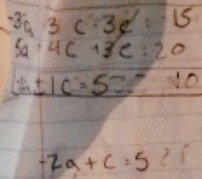 -3a 3 c 3e = -15
5a 4c + 3e = 20
1c = 5 = 10
-2a + c = 5